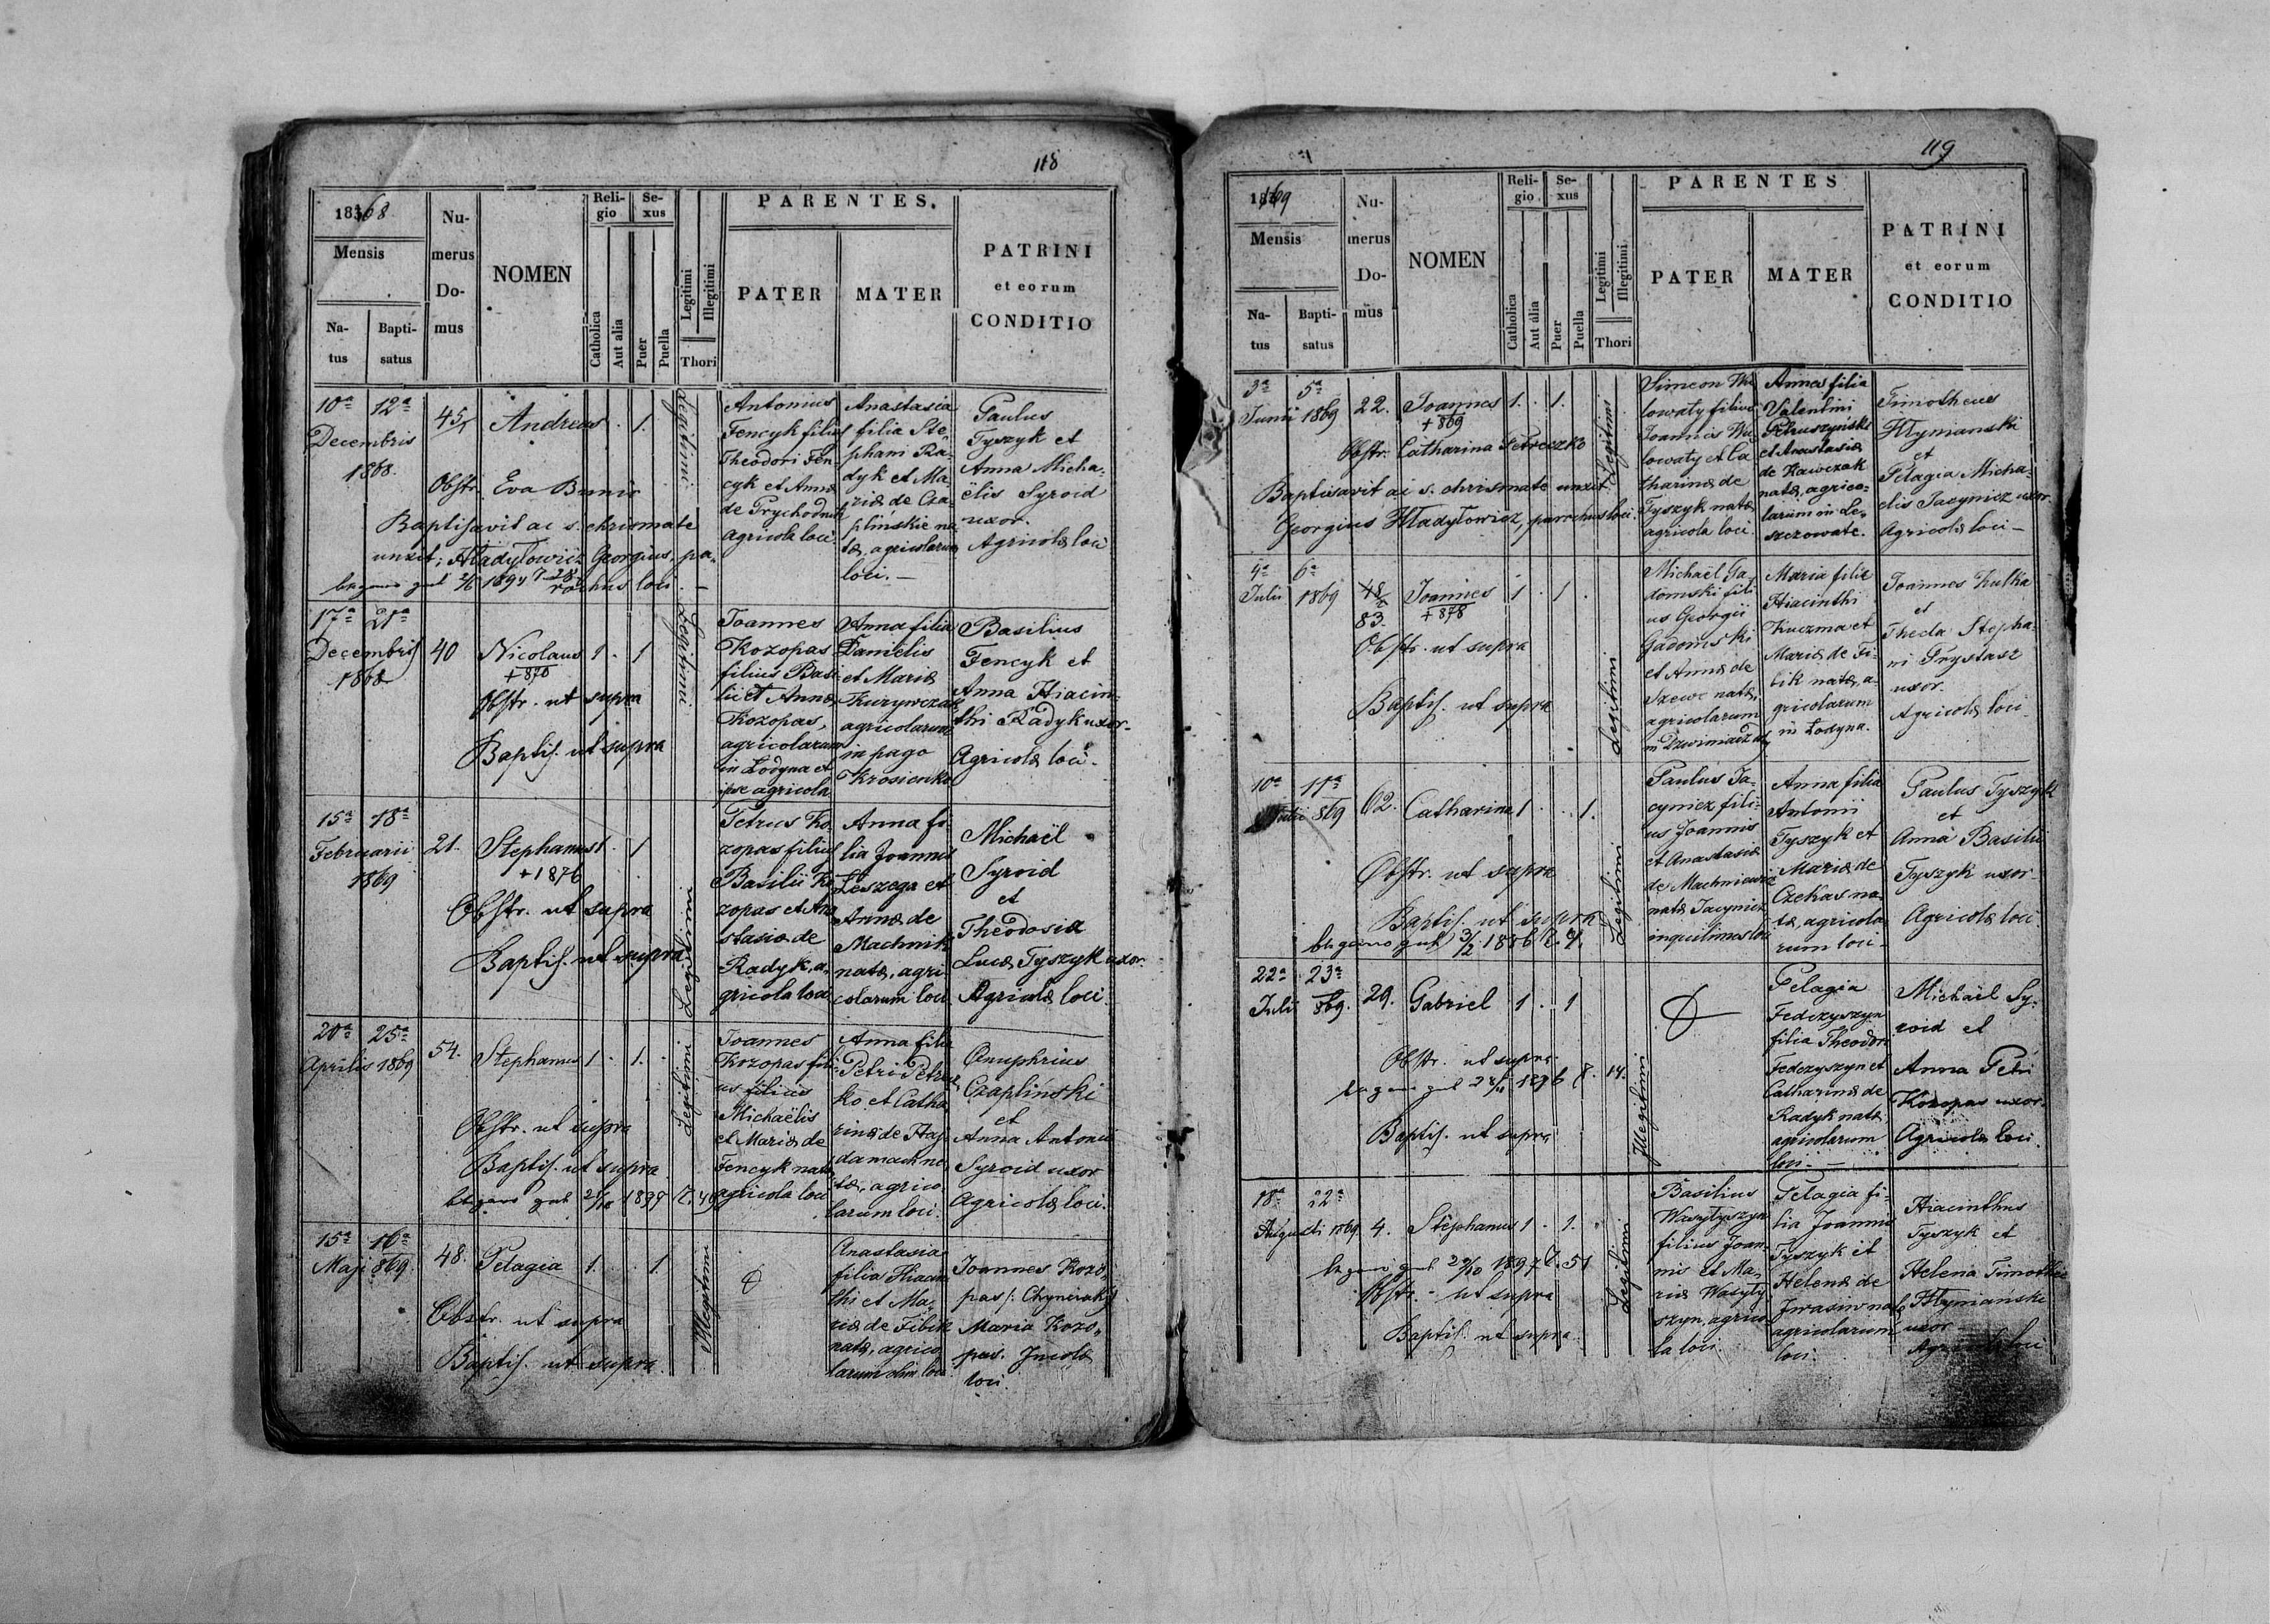 118
1868
Mensis
Natus
Baptisatus
Numerus Domus
NOMEN
Religio
Catholica
Aut alia
Sexus
Puer
Puella
Legitimi
Illegitimi
Thori
PARENTES.
PATER
MATER
PATRINI
et eorum
CONDITIO
10ª 12ª
Decembris
1868.
45
Andreas 1.
Obstr. Eva Bunio
Baptisavit ac s. chrismate
unxit; Hładyłowicz Georgius, pa-
rochus loci.
Legitimi
Antonius
Fencyk filius
Theodori Fen-
cyk et Annæ
de Prychodnik
agricola loci
Anastasia
filia Ste-
phani Ra-
dyk et Ma-
riæ de Cza-
plińskie na-
tæ, agricolarum
loci. —
Paulus
Tyszyk et
Anna Micha-
ëlis Syroid
uxor.
Agricolæ loci
17ª 21ª
Decembris
1868
40
Nicolaus 1 . 1
+ 870
Obstr. ut supra
Baptis. ut supra
Legitimi
Joannes
Kozopas
filius Basi-
lii et Annæ
Kozopas,
agricolarum
in Łodyna et
ipse agricola
Anna filia
Danielis
et Mariæ
Kurywczak
agricolarum
in pago
Krosienko
Basilius
Fencyk et
Anna Hiacin-
thi Radyk uxor.
Agricolæ loci.
15ª 18ª
Februarii
1869
21.
Stephanus 1 . 1
+ 1876
Obstr. ut supra
Baptis. ut supra
Legitimi
Petrus Ko-
zopas filius
Basilii Ko-
zopas et Ana-
stasiæ de
Radyk, a-
gricola loci
Anna fi-
lia Joannis
Leszega et
Annæ de
Machnik
natæ, agri-
colarum loci
Michaël
Syroid
et
Theodosia
Lucæ Tyszyk uxor.
Agricolæ loci.
20ª 25ª
Aprilis 1869
54.
Stephanus 1 . 1.
Obstr. ut supra
Baptis. ut supra
Legitimi
Joannes
Kozopas fili-
us filius
Michaëlis
et Mariæ de
Fencyk natæ,
agricola loci
Anna filia
Petri Petrecz-
ko et Catha-
rinæ de Haj-
damach na-
tæ, agrico-
larum loci.
Onuphrius
Czapliński
et
Anna Antonii
Syroid uxor
Agricolæ loci.
15ª 16ª
Maji 869.
48.
Pelagia 1. . 1.
Obstr. ut supra
Baptis. ut supra.
Illegitimi
Anastasia
filia Hiacin-
thi et Ma-
riæ de Fibik
natæ, agrico-
larum olim loci
Joannes Kozo-
pas
Maria Kozo-
pas. Incolæ
loci.
119
1869
Mensis
Natus
Baptisatus
Numerus Domus
NOMEN
Religio
Catholica
Aut alia
Sexus
Puer
Puella
Legitimi
Illegitimi
Thori
PARENTES
PATER
MATER
PATRINI
et eorum
CONDITIO
3ª 5ª
Junii 1869
22.
Joannes 1. . 1.
+ 869
Obstr. Catharina Petreczko
Baptisavit ac s. chrismate unxit
Georgius Hładyłowicz, parochus loci.
Legitimi
Simeon Wo-
łowaty filius
Joannis Wo-
łowaty et Ca-
tharinæ de
Tyszyk natæ
agricola loci.
Anna filia
Valentini
Petruszyński
et Anastasiæ
de Kawczak
natæ, agrico-
larum in Le-
szczowate.
Timotheus
Hłynianski
et
Pelagia Micha-
elis Jacynicz uxor
Agricolæ loci —
4ª 6ª
Julii 1869
48
83.
Joannes 1 . 1 .
+ 878
Obstr. ut supra
Baptis. ut supra
Legitimi
Michaël Ga-
domski fili-
us Georgii
Gadomski
et Annæ de
Szewc natæ,
agricolarum
Maria filia
Hiacinthi
Kuczma et
Mariæ de Fi-
bik natæ, a-
gricolarum
in Łodyna.
Joannes Kulka
et
Thecla Stepha-
ni Prystasz
uxor.
Agricolæ loci
10ª 11ª
Julii 869
62.
Catharina 1 . . 1.
Obstr. ut supra
Baptis. ut supra
Legitimi
Paulus Ja-
cynicz fili-
us Joannis
et Anastasiæ
de Machniewicz
natæ Jacynicz
inquilinus loci
Anna filia
Antonii
Tyszyk et
Mariæ de
Czekas na-
tæ, agricola-
rum loci.
Paulus Tyszyk
et
Anna Basilii
Tyszyk uxor-
Agricolæ loci
22ª 23ª
Julii 869.
29.
Gabriel 1 . 1
Obstr. ut supra
Baptis. ut supra
Illegitimi
Pelagia
Fedczyszyn
filia Theodori
Fedczyszyn et
Catharinæ de
Radyk natæ
agricolarum
loci. —
Michaël Sy-
roid et
Anna Petri
Kozopas uxor.
Agricolæ loci.
18ª 22ª
Augusti 1869
4.
Stephanus 1 . 1.
Obstr. - ut supra
Baptis. ut supra.
Legitimi
Basilius
Wasyłyszyn
filius Joan-
nis et Ma-
riæ Wasyły-
szyn, agrico-
la loci.
Pelagia fi-
lia Joannis
Tyszyk et
Helenæ de
Iwasiw natæ
agricolarum
loci.
Hiacinthus
Tyszyk et
Helena Timothei
Hłyniański
uxor
Agricolæ loci